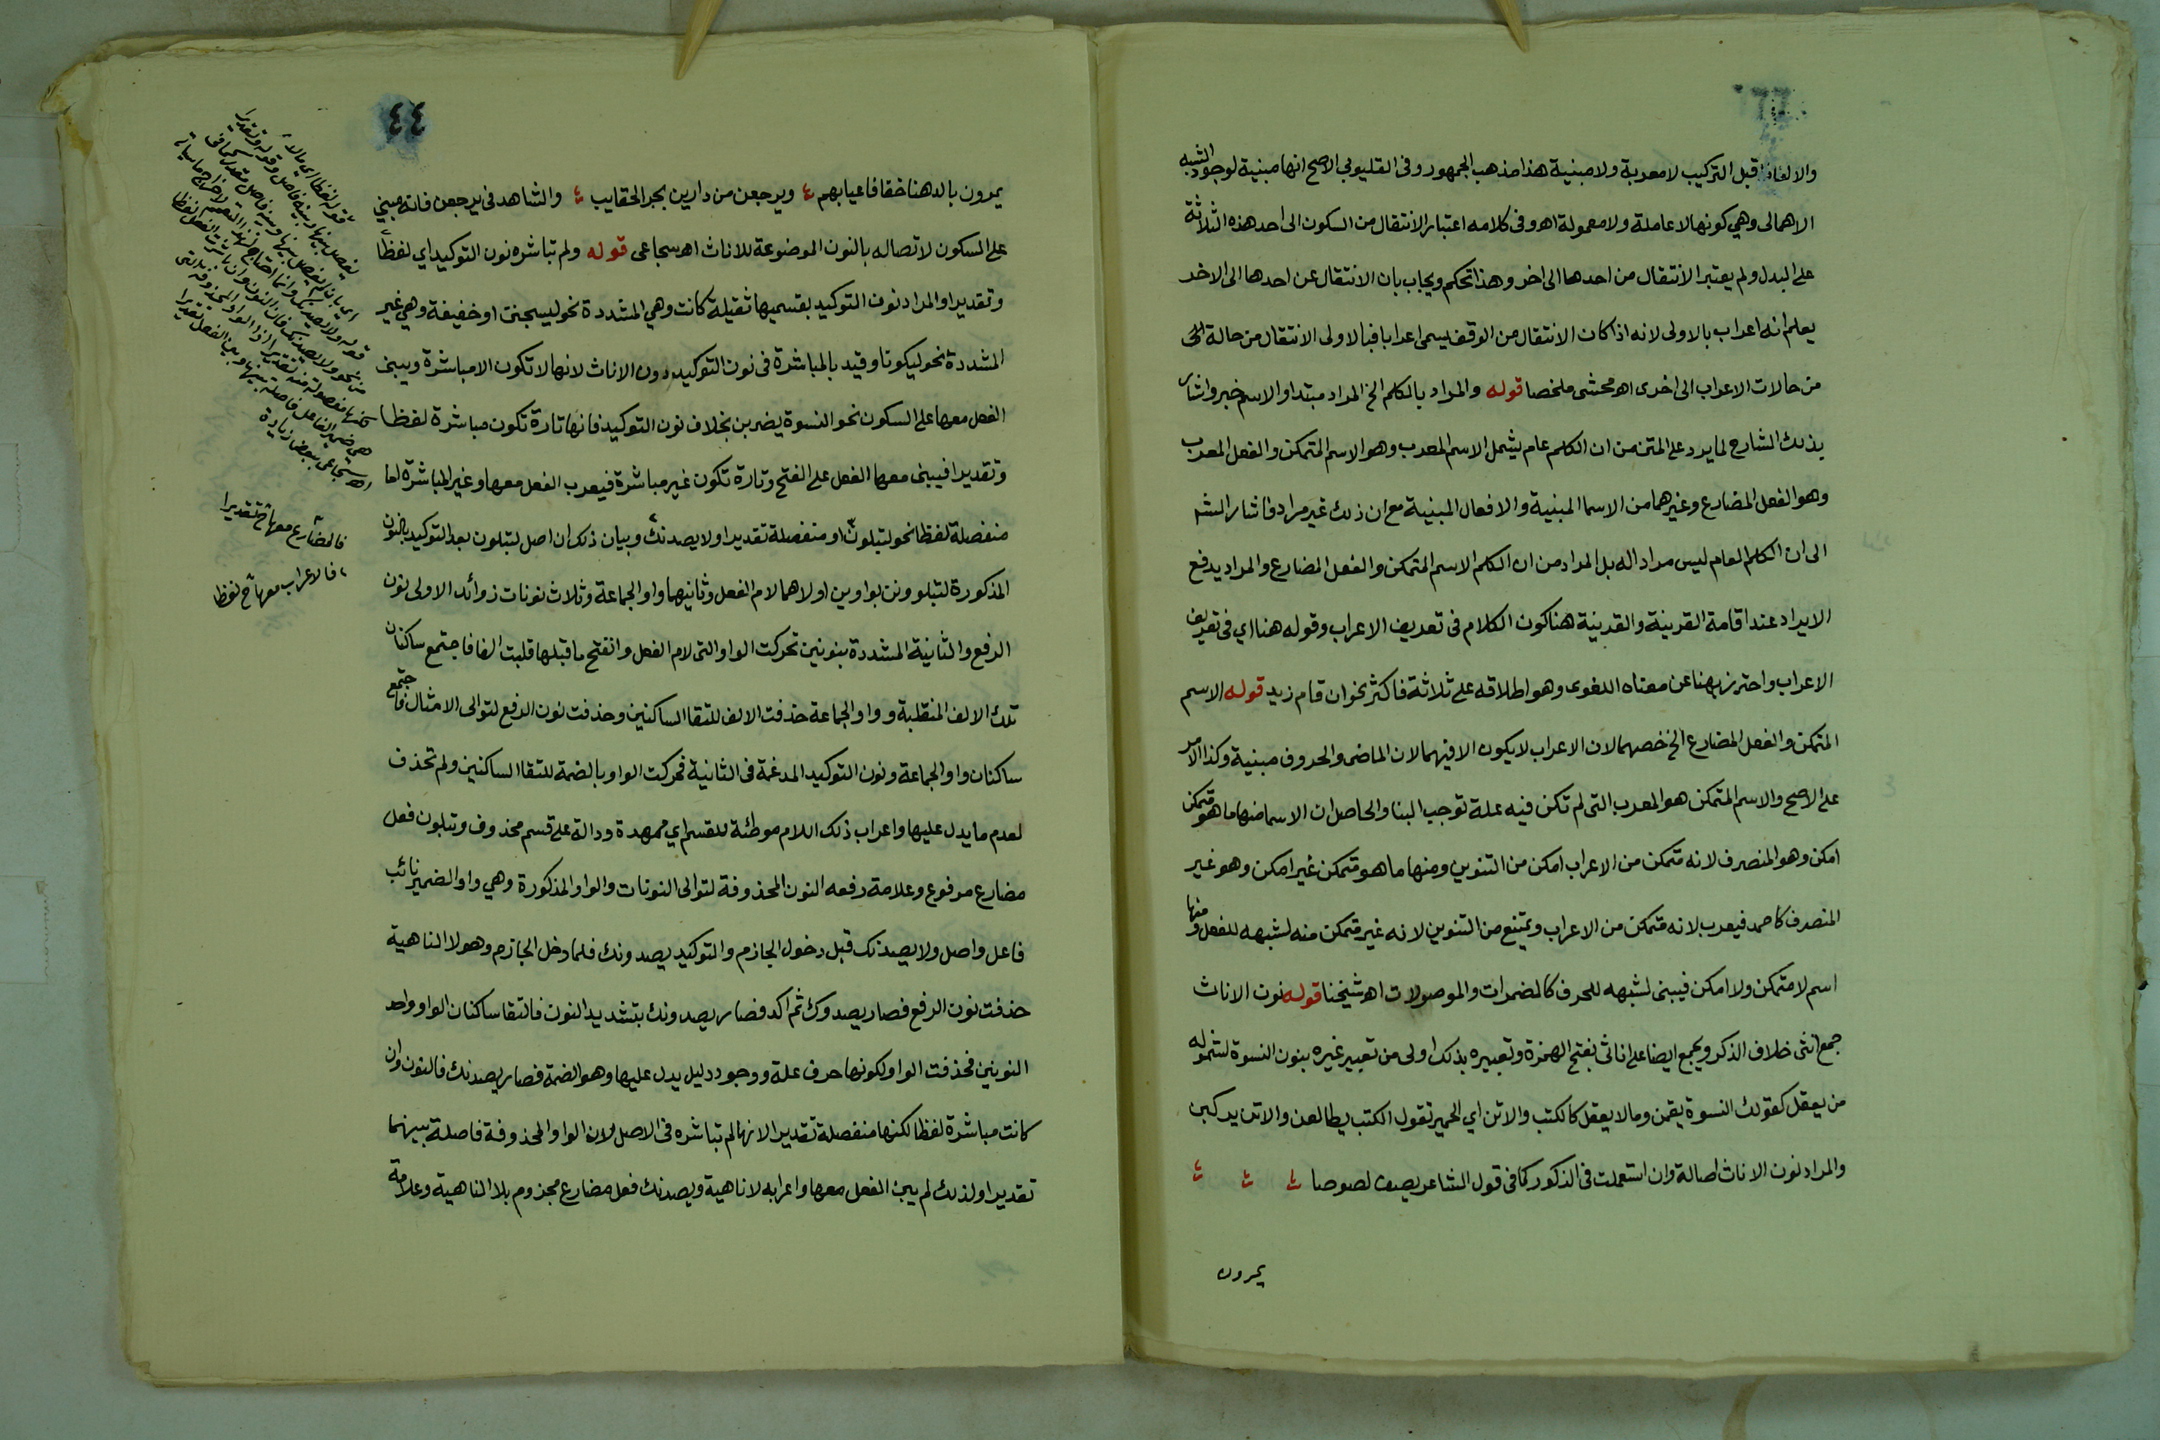 والالفاظ قبل التركيب لا معربة ولا مبنية هذا مذهب الجمهور وفى القليوبي الاصح انها مبنية لوجود الشبه
الاهمالى وهي كونها لا عاملة ولا معمولة اهـ وفى كلامه اعتبار الانتقال من السكون الى احد هذه الثلاثة
على البدل ولم يعتبر الانتقال من احدها الى اخر وهذا تحكم ويجاب بان الانتقال عن احدها الى الاخر
يعلم انه اعراب بالاولى لانه اذا كان الانتقال من الوقف يسمى اعرابا فبالاولى الانتقال من حالة
من حالات الاعراب الى اخرى اهـ محشى ملخصا قوله والمراد بالكلم الخ المراد مبتدا والاسم خبر واشار
بذلك الشارح لما يرد على المتن من ان الكلم عام يشمل الاسم المعرب وهو الاسم المتمكن والفعل المعرب
وهو الفعل المضارع وغيرهما من الاسما المبنية والافعال المبنية مع ان ذلك غير مراد فاشار الشـ
الى ان الكلم العام ليس مراد اله بل المراد من ان الكلم الاسم المتمكن والفعل المضارع والمراد يدفع
الايراد عند اقامة القرينة والقرينة هنا كون الكلام فى تعريف الاعراب وقوله هنا اي فى تعريف
الاعراب واحترز بهنا عن معناه اللغوى وهو اطلاقه على ثلاثة فاكثر نحو ان قام زيد قوله الاسم
المتمكن والفعل المضارع الخ خصهما لان الاعراب لا يكون الا فيهما لان الماضى والحروف مبنية وكذا الامر
على الاصح والاسم المتمكن هو المعرب التى لم تكن فيه علة توجب البنا والحاصل ان الاسما منها ما هو متمكن
امكن وهو المنصرف لانه متمكن من الاعراب امكن من التنوين ومنها ما هو متمكن غير امكن وهو غير
المنصرف كاحمد فيعرب لانه متمكن من الاعراب ويمتنع من التنوين لانه غير متمكن منه لشبهه للفعل ومنها
اسم لا متمكن ولا امكن فيبنى لشبهه للحرف كالمضمرات والموصولات اهـ شيخنا قوله نون الاناث
جمع انثى خلاف الذكر ويجمع ايضا على اناثى بفتح الهمزة وتعبيره بذلك اولى من تعبير غيره بنون النسوة لشموله
من يعقل كقولك النسوة يقمن وما لا يعقل كالكتب والاتن اي الحمير تقول الكتب يطالعن والاتن يركبن
والمراد نون الاناث اصالة وان استعملت فى الذكور كما فى قول الشاعر يصف لصوصا
يمرون
٤٤
يمرون بالدهنا خفافا عيابهم ويرجعن من دارين بجر الحقايب والشاهد فى يرجعن فانه مبني
على السكون لاتصاله بالنون الموضوعة للاناث اهـ سجاعى قوله ولم تباشره نون التوكيد اي لفظا
وتقديرا والمراد نون التوكيد بقسميها ثقيلة كانت وهي المشددة نحو ليسجنن او خفيفة وهي غير
المشددة نحو ليكونا وقيد بالمباشرة فى نون التوكيد دون الاناث لانها لا تكون الا مباشرة ويبنى
الفعل معها على السكون نحو النسوة يضربن بخلاف نون التوكيد فانها تارة تكون مباشرة لفظا
وتقديرا فيبنى معها الفعل على الفتح وتارة تكون غير مباشرة فيعرب الفعل معها وغير المباشرة اما
منفصلة لفظا نحو لتبلون او منفصلة تقديرا ولا يصدنك وبيان ذلك ان اصل لتبلون بعد التوكيد بالنون
المذكورة لتبلوونن بواوين اولاهما لام الفعل وثانيهما واو الجماعة وثلاث نونات زوائد الاولى نون
الرفع والثانية المشددة بنونين تحركت الواو التى لام الفعل وانفتح ما قبلها قلبت الفا فاجتمع ساكنان
تلك الالف المنقلبة وواو الجماعة حذفت الالف للتقا الساكنين وحذفت نون الرفع لتوالى الامثال فاجتمع
ساكنان واو الجماعة ونون التوكيد المدغمة فى الثانية فحركت الواو بالضمة للتقا الساكنين ولم تحذف
لعدم ما يدل عليها واعراب ذلك اللام موطئة للقسم اي ممهدة ودالة على قسم محذوف وتبلون فعل
مضارع مرفوع وعلامة رفعه النون المحذوفة لتوالى النونات والواو المذكورة وهي واو الضمير نائب
فاعل واصل ولا يصدنك قبل دخول الجازم والتوكيد يصدونك فلما دخل الجازم وهو لا الناهية
حذفت نون الرفع فصار يصدوك ثم اكد فصار يصدونك بتشديد النون فالتقا ساكنان الواو واحد
النونين فحذفت الواو لكونها حرف علة ووجود دليل يدل عليها وهو الضمة فصار يصدنك فالنون وان
كانت مباشرة لفظا لكنها منفصلة تقديرا لانها لم تباشره فى الاصل لان الواو المحذوفة فاصلة بينهما
تقديرا ولذلك لم يبن الفعل معها واعرابه لا ناهية ويصدنك فعل مضارع مجزوم بلا الناهية وعلامة
قوله لفظا اى حالا
فالمضارع معها تقديرا
فالاعراب معها لفظا